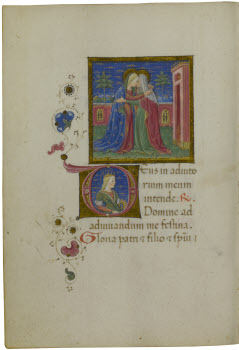 Deus in adiuto
rium meum
intende. R.
Domine ad
adiuuandum me festina.
Gloria patri & filio & spiri